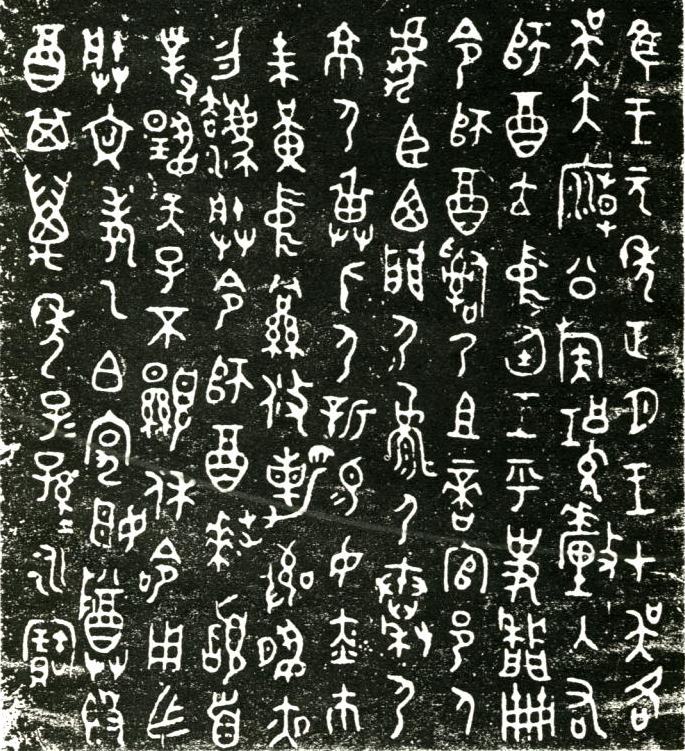 隹王元年正月王才吳各
吳大廟公族釐入右
師酉立中廷王乎史牆冊
令師酉𤔲乃且啻官邑人
虎臣西門尸尸秦尸
京尸身尸新易女赤巿
朱黃中攸勒敬夙夜
勿灋朕令師酉拜𩒨首
對揚天子不顯休令用乍
朕文考乙白宄姬尊簋
酉其萬年子子孫孫永寶